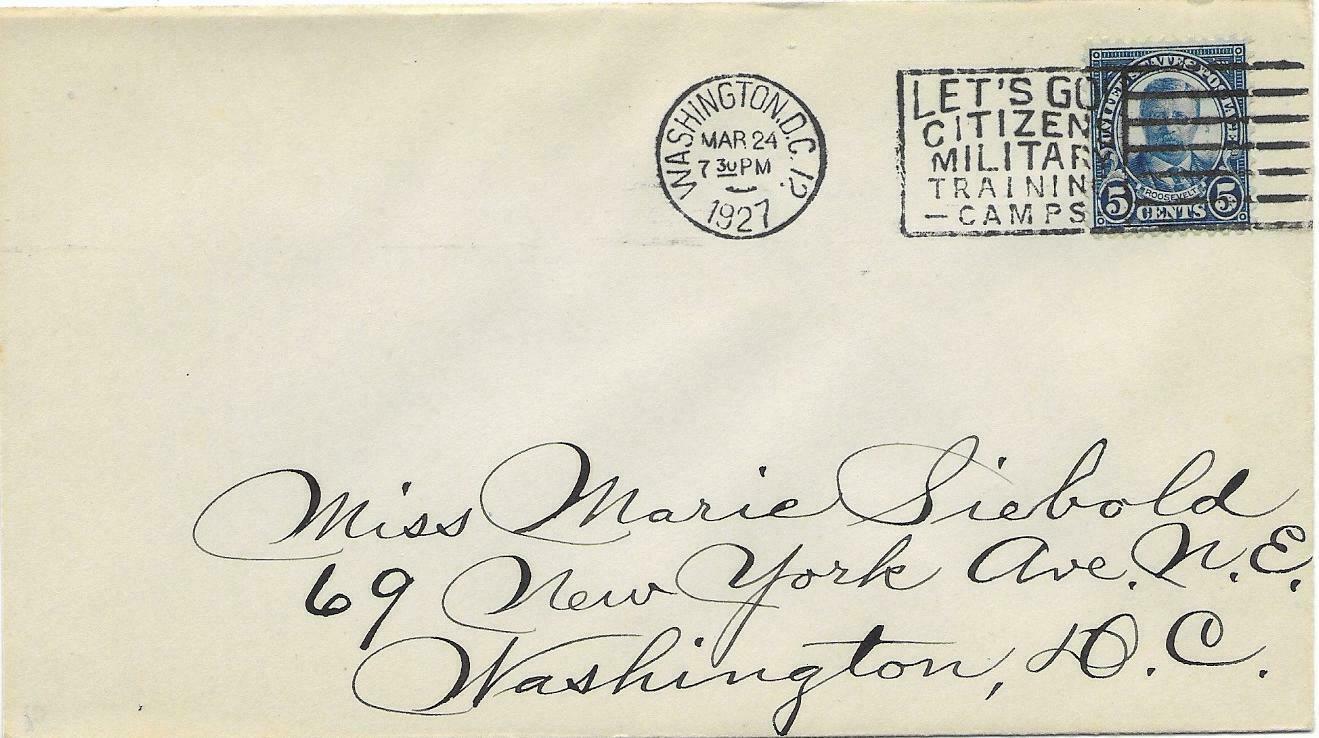 WASHINGTON, D.C. 12
MAR 24
7 30 PM
1927
LET'S GO
CITIZEN
MILITAR
TRAININ
— CAMPS
UNITED STATES POSTAGE
ROOSEVELT
5 CENTS 5
Miss Marie Siebold
69 New York Ave. N.E.
Washington, D.C.